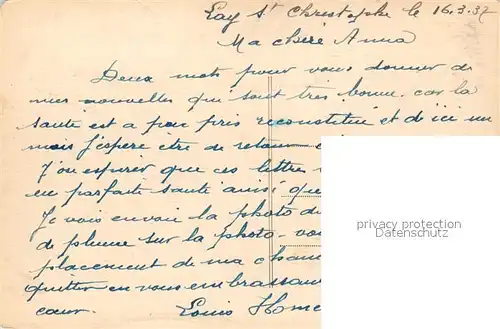 Lay St Christophe le 16.3.37
Ma chère Anna
Deux mots pour vous donner de
mes nouvelles qui sont très bonne. car la
santé est a peu pris reconstitué et d'ici un
mois j'espère être de retour
J'ou espérer que ces lettre
en parfaite santé ainsi que
Je vois envoie la photo de
de plume sur la photo - vou
placement de ma cham
quitter en vous embrassan
cœur. Louis
privacy protection
Datenschutz